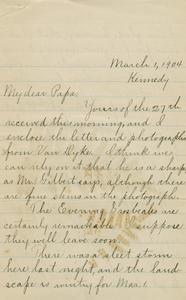 March 1, 1904
Kennedy
My dear Papa:
Yours of the 27th
received this morning, and I
enclose the letter and photographs
from Van Dyke. I think we
can rely on it that he is a sharp,
as Mr. Gilbert says, although there
are fine stems in the photograph.
The Evening Grosbeaks are
certainly remarkable. I suppose
they will leave soon.
There was a sleet storm
here last night, and the land
scape is wintry for Mar. 1.